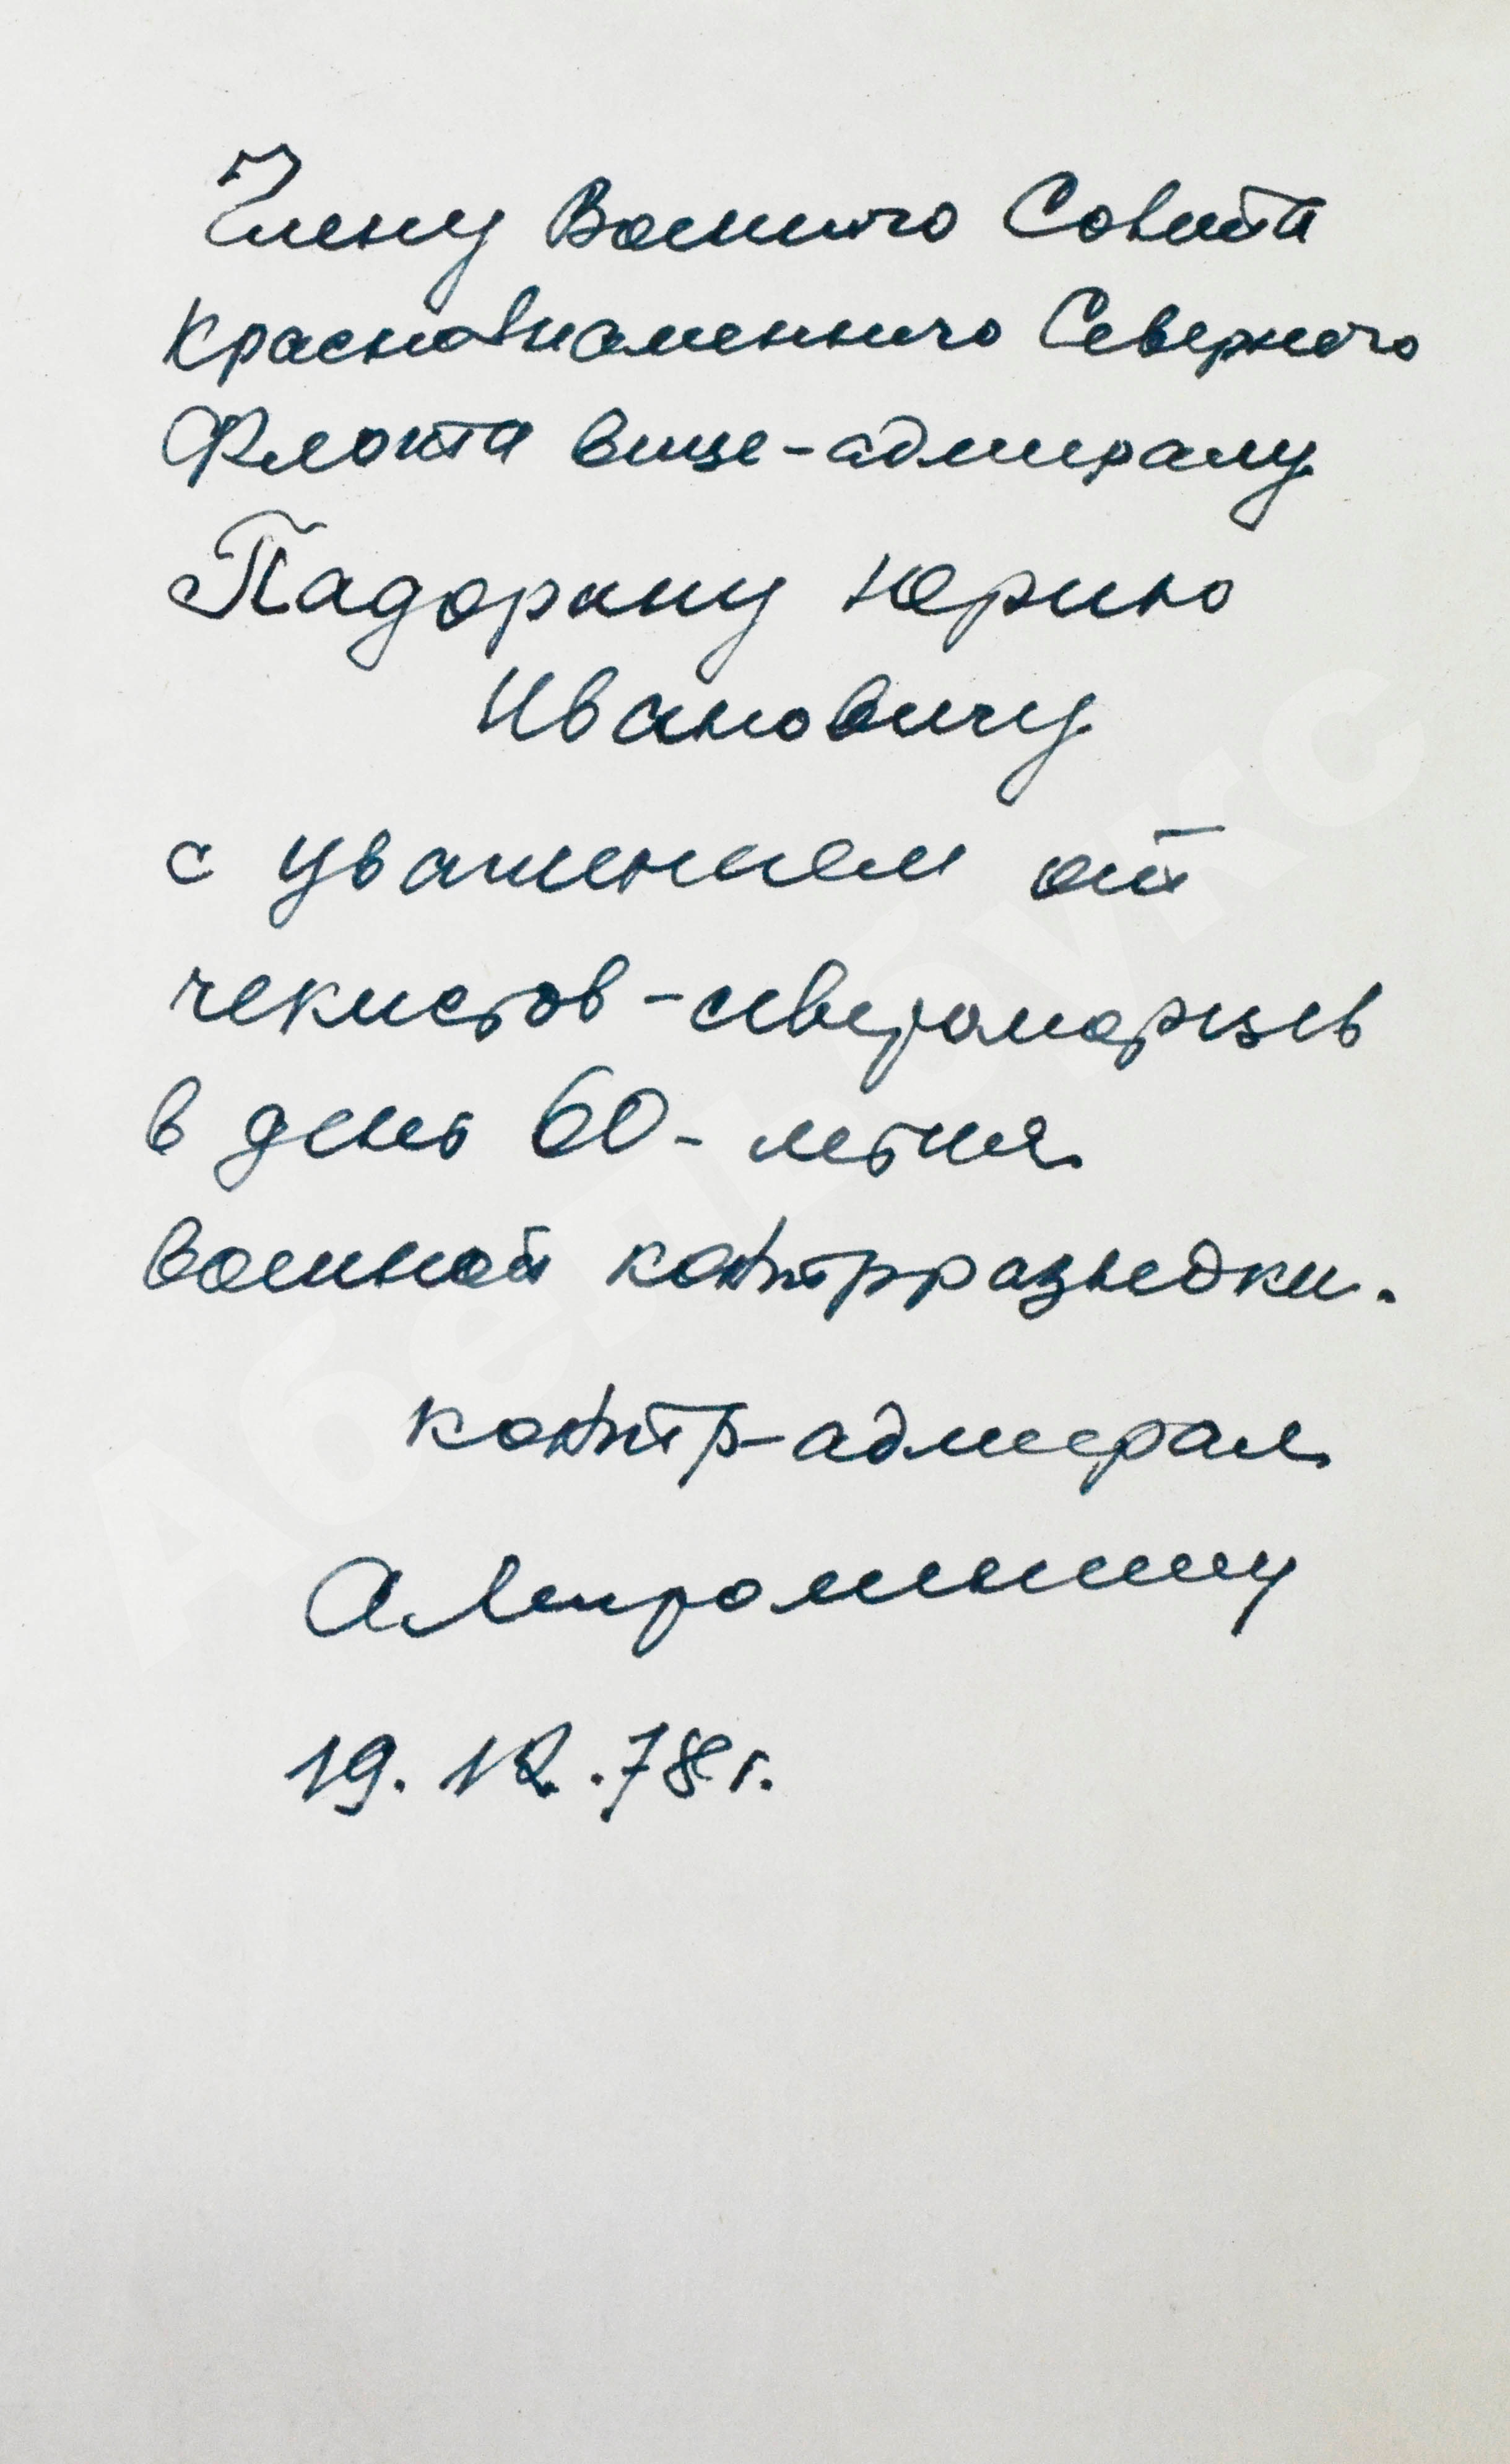 Члену Военного Совета
Краснознаменного Северного
Флота вице-адмиралу
Падорину Юрию
Ивановичу
с уважением от
чекистов-североморцев
в день 60-летия
военной контрразведки.
контр-адмирал
19.12.78г.
Абельбукс